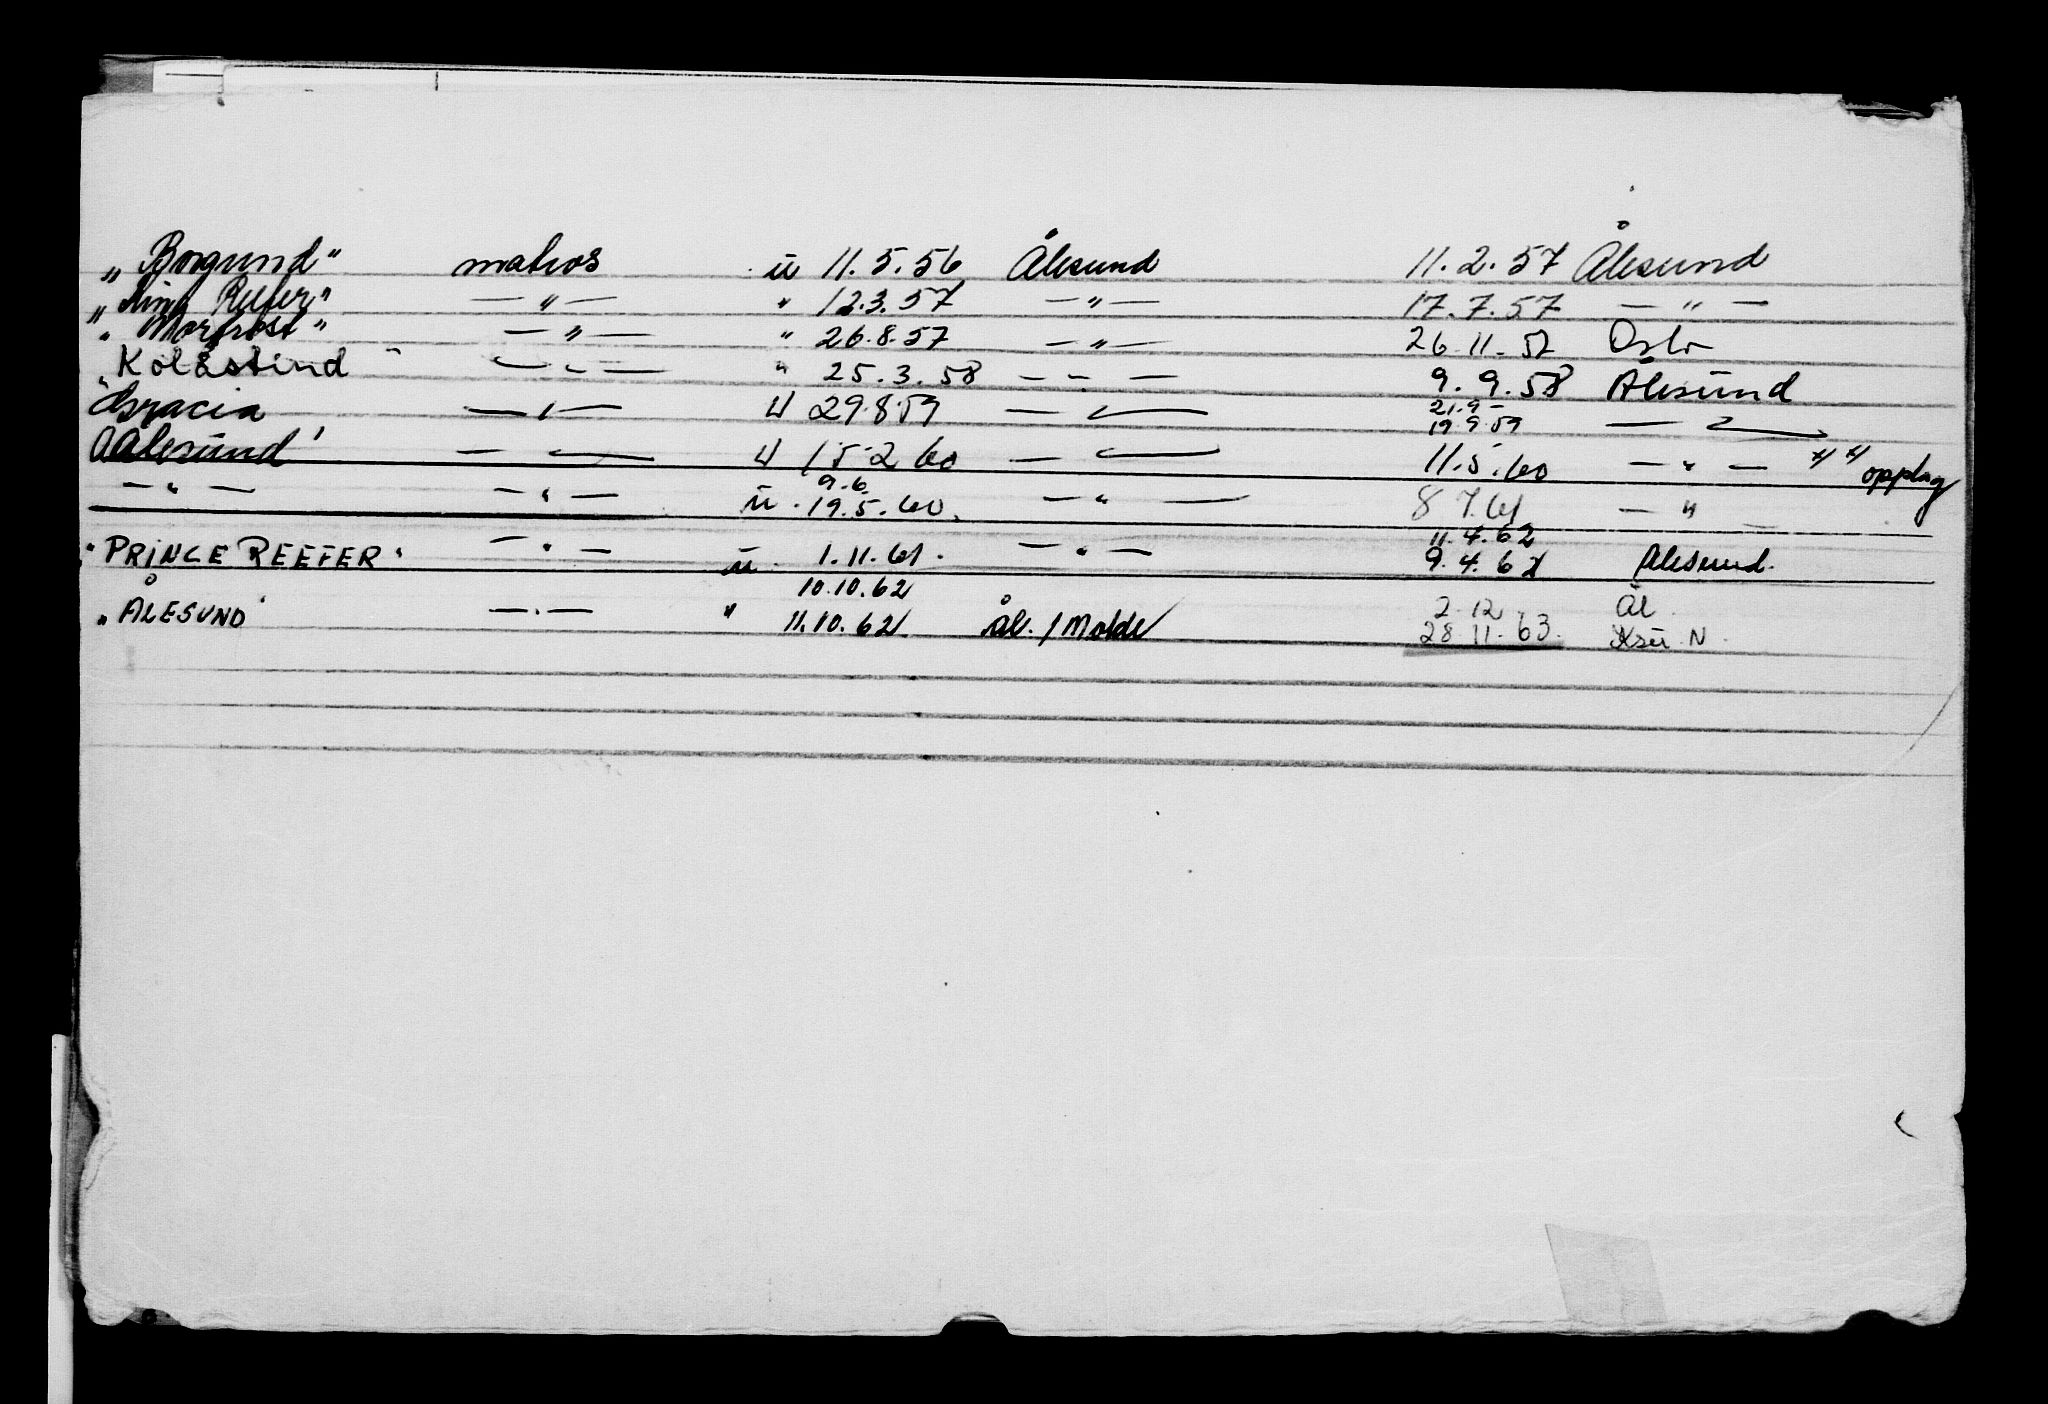 „Borgund" matros u 11.5.56 Ålesund 11.2.57 Ålesund
„King Reefer" — " — " 12.3.57 — " — 17.7.57 — " —
„Morfrost" — " — " 26.8.57 — " — 26.11.57 Oslo
„Kolåstind" — " — " 25.3.58 — " — 9.9.58 Ålesund
21.9
"Gracia — " — u 29.8.59 — " — 19.9.59 — " —
Aalesund' — " — u 15.2.60 — " — 11.5.60 — " — opplag
9.6
— " — — " — u. 19.5.60. — " — 8.7.61 — " —
11.4.62
"PRINCE REEFER" — " — u. 1.11.61. — " — 9.4.62 Ålesund.
10.10.62 2.12. Ål.
„ÅLESUND" — " — " 11.10.62. Ål. / Molde 28.11.63. N.